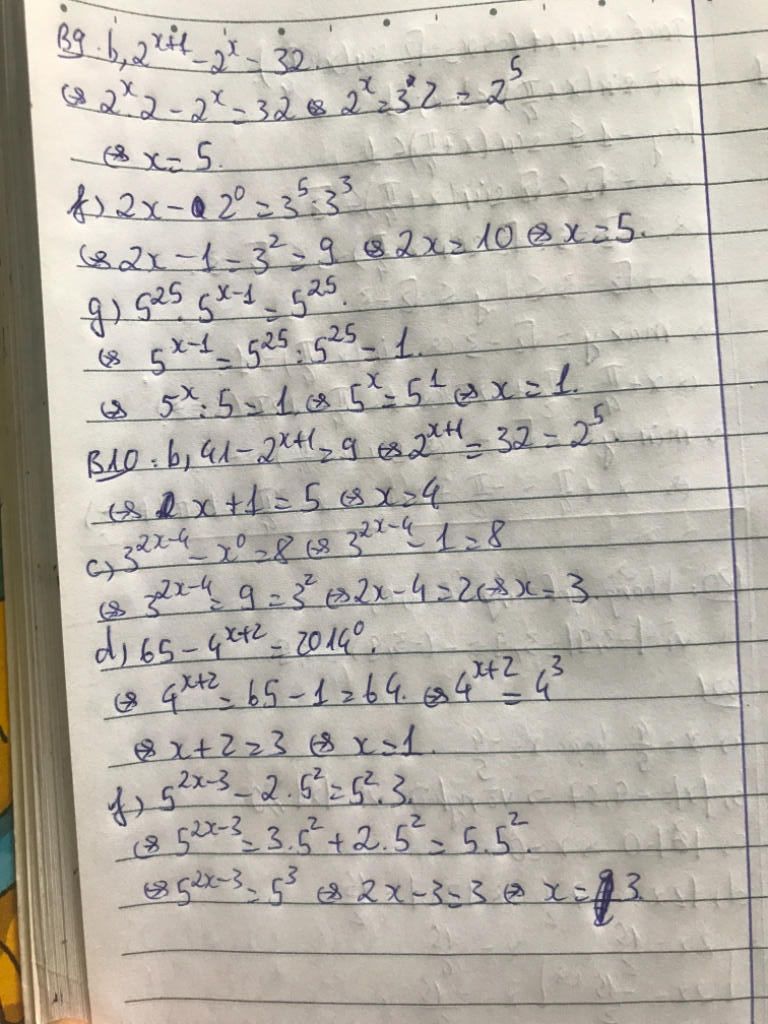 B9. b, 2^{x+1} - 2^x = 32.
⇔ 2^x.2 - 2^x = 32 ⇔ 2^x = 32 = 2^5
⇔ x = 5.
f) 2x - 2^0 = 3^5 : 3^3
⇔ 2x - 1 = 3^2 = 9 ⇔ 2x = 10 ⇔ x = 5.
g) 5^{25} . 5^{x-1} = 5^{25}.
⇔ 5^{x-1} = 5^{25} : 5^{25} = 1.
⇔ 5^x : 5 = 1 ⇔ 5^x = 5^1 ⇔ x = 1.
B10 : b, 41 - 2^{x+1} = 9 ⇔ 2^{x+1} = 32 = 2^5.
⇔ x + 1 = 5 ⇔ x = 4
c) 3^{2x-4} - x^0 = 8 ⇔ 3^{2x-4} - 1 = 8
⇔ 3^{2x-4} = 9 = 3^2 ⇔ 2x - 4 = 2 ⇔ x = 3
d) 65 - 4^{x+2} = 2014^0.
⇔ 4^{x+2} = 65 - 1 = 64. ⇔ 4^{x+2} = 4^3
⇔ x + 2 = 3 ⇔ x = 1.
f) 5^{2x-3} - 2.5^2 = 5^2.3.
⇔ 5^{2x-3} = 3.5^2 + 2.5^2 = 5.5^2.
⇔ 5^{2x-3} = 5^3 ⇔ 2x - 3 = 3 ⇔ x = 3.